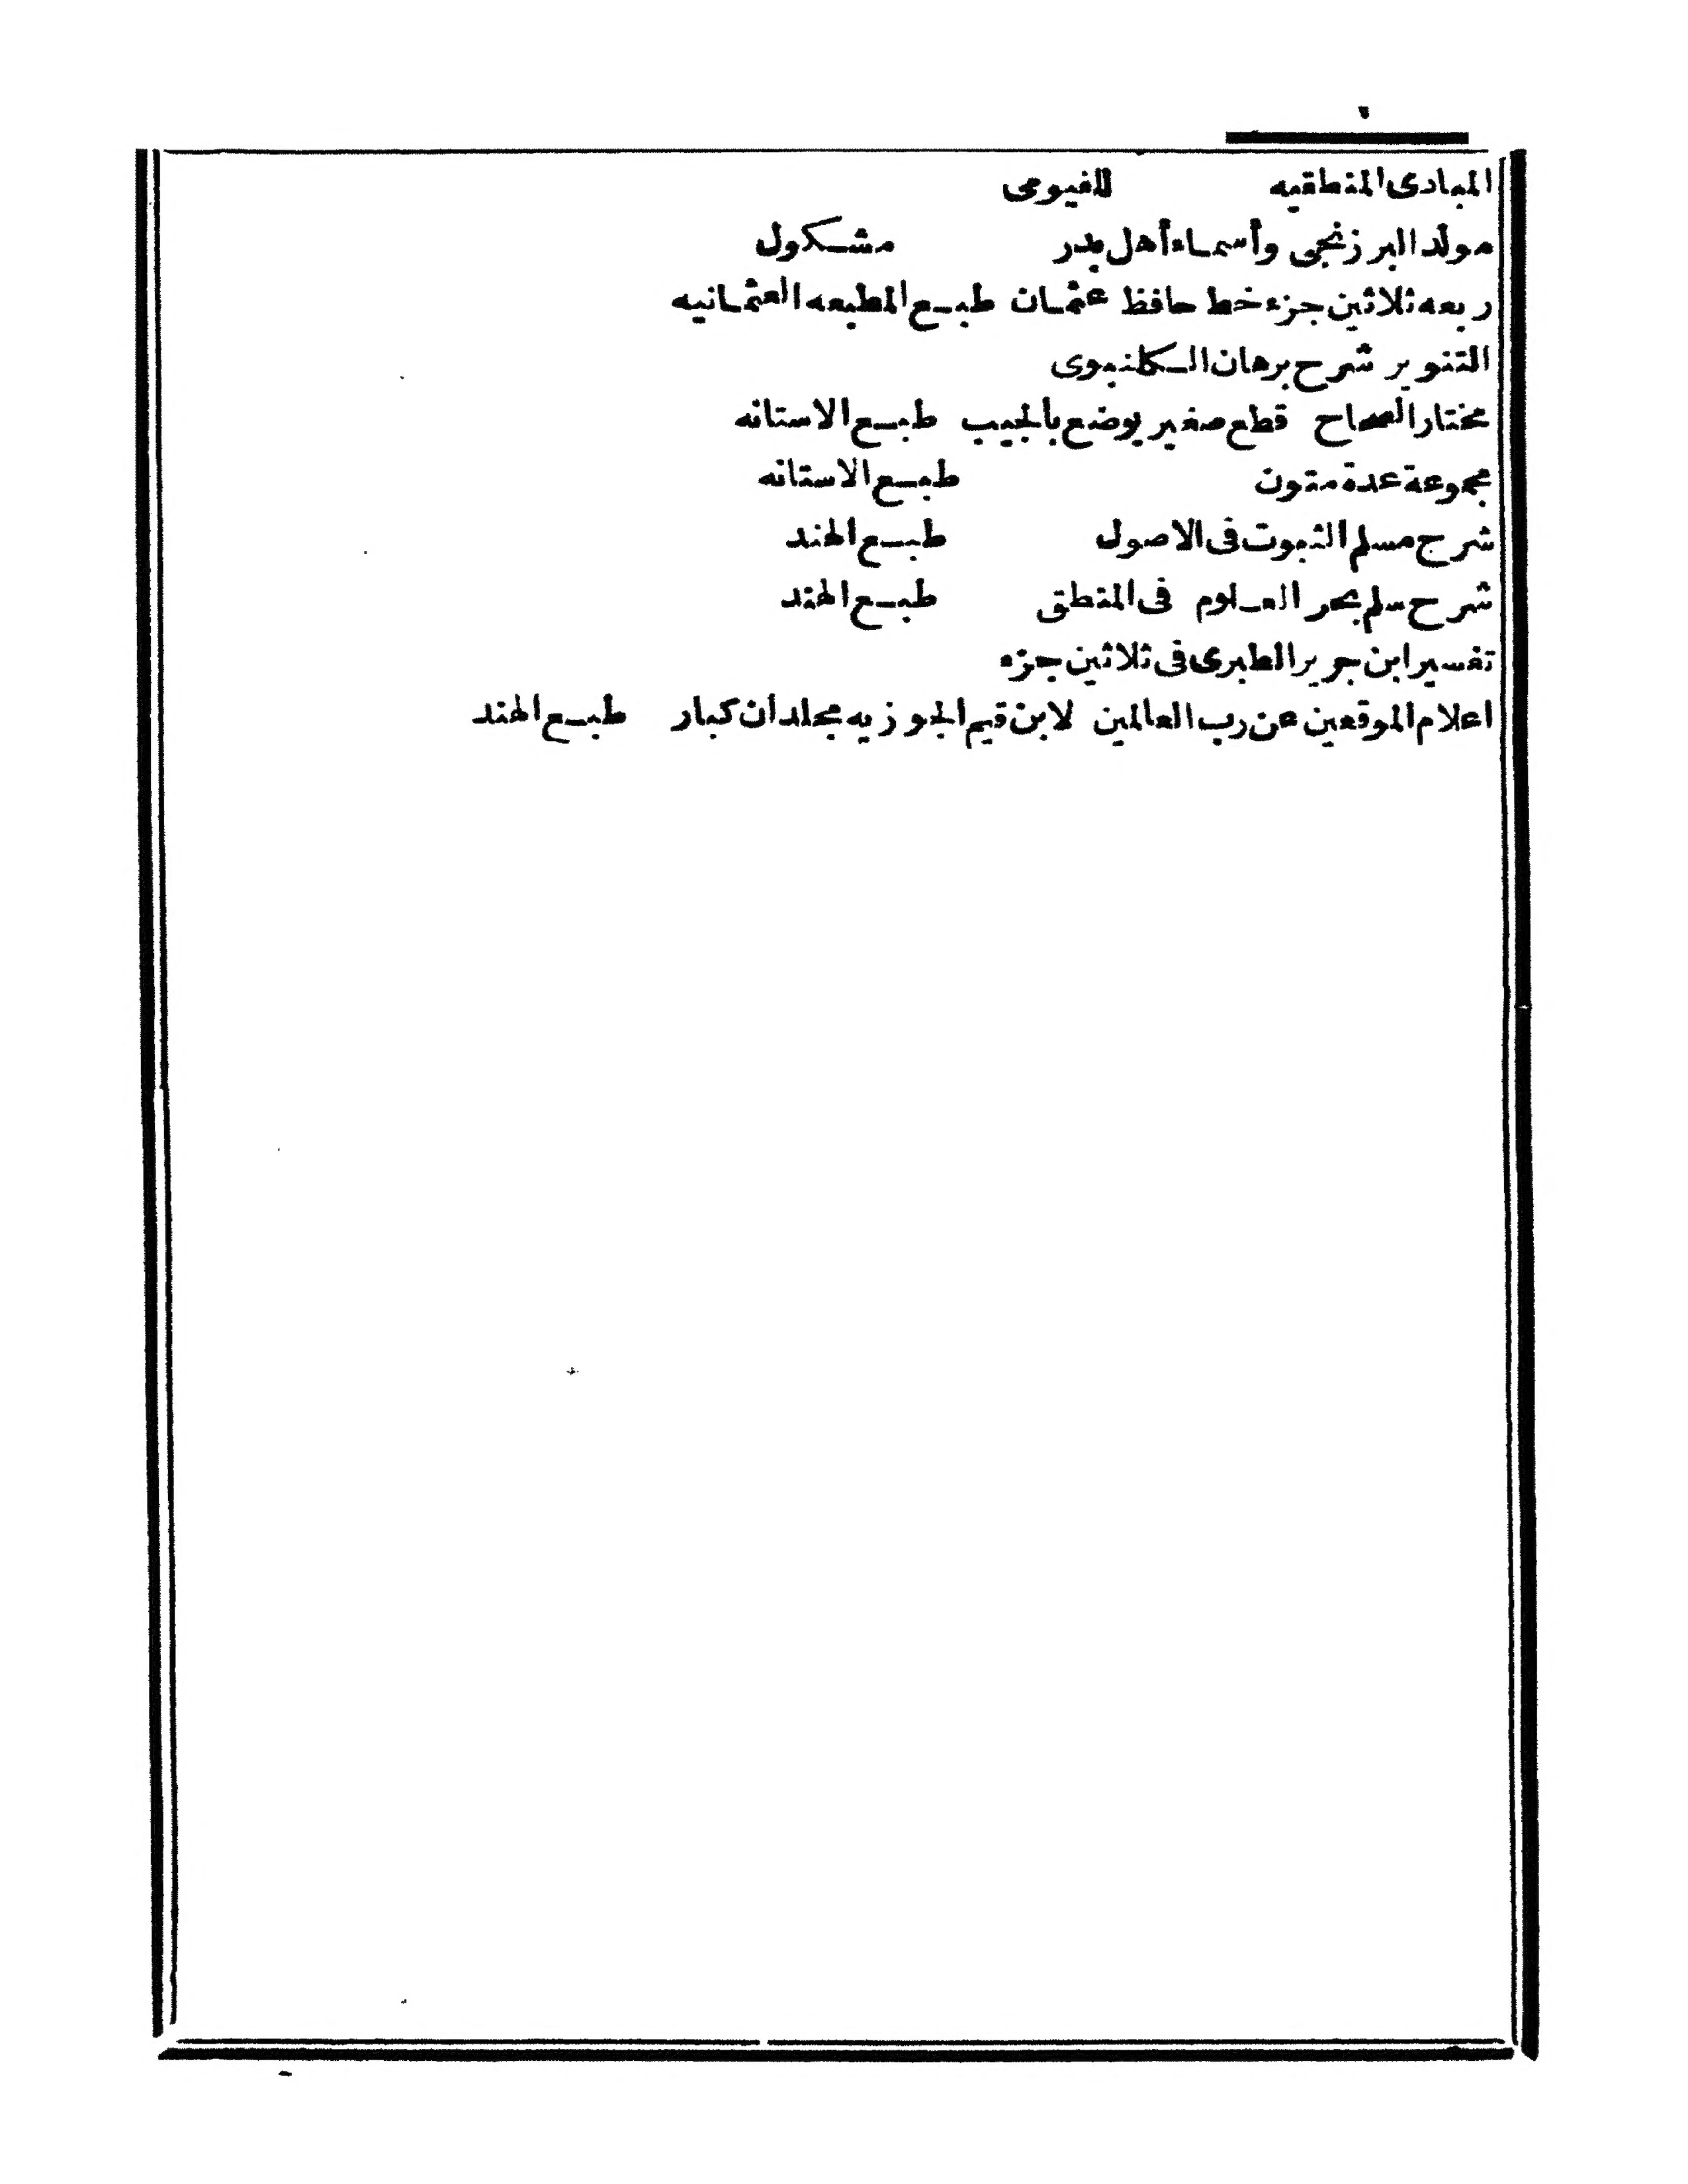 المبادى المنطقيه للفيومى
مولد البرزنجى وأسماء أهل بدر مشكول
ربعه ثلاثين جزء خط حافظ عثمان طبع المطبعه العثمانيه
التنوير شرح برهان الكلنبوى
مختار الصحاح قطع صغير يوضع بالجيب طبع الاستانه
مجموعة عدة متون طبع الاستانه
شرح مسلم الثبوت فى الاصول طبع الهند
شرح سلم بحر العلوم فى المنطق طبع الهند
تفسير ابن جرير الطبرى فى ثلاثين جزء
اعلام الموقعين عن رب العالمين لابن قيم الجوزيه مجلدان كبار طبع الهند